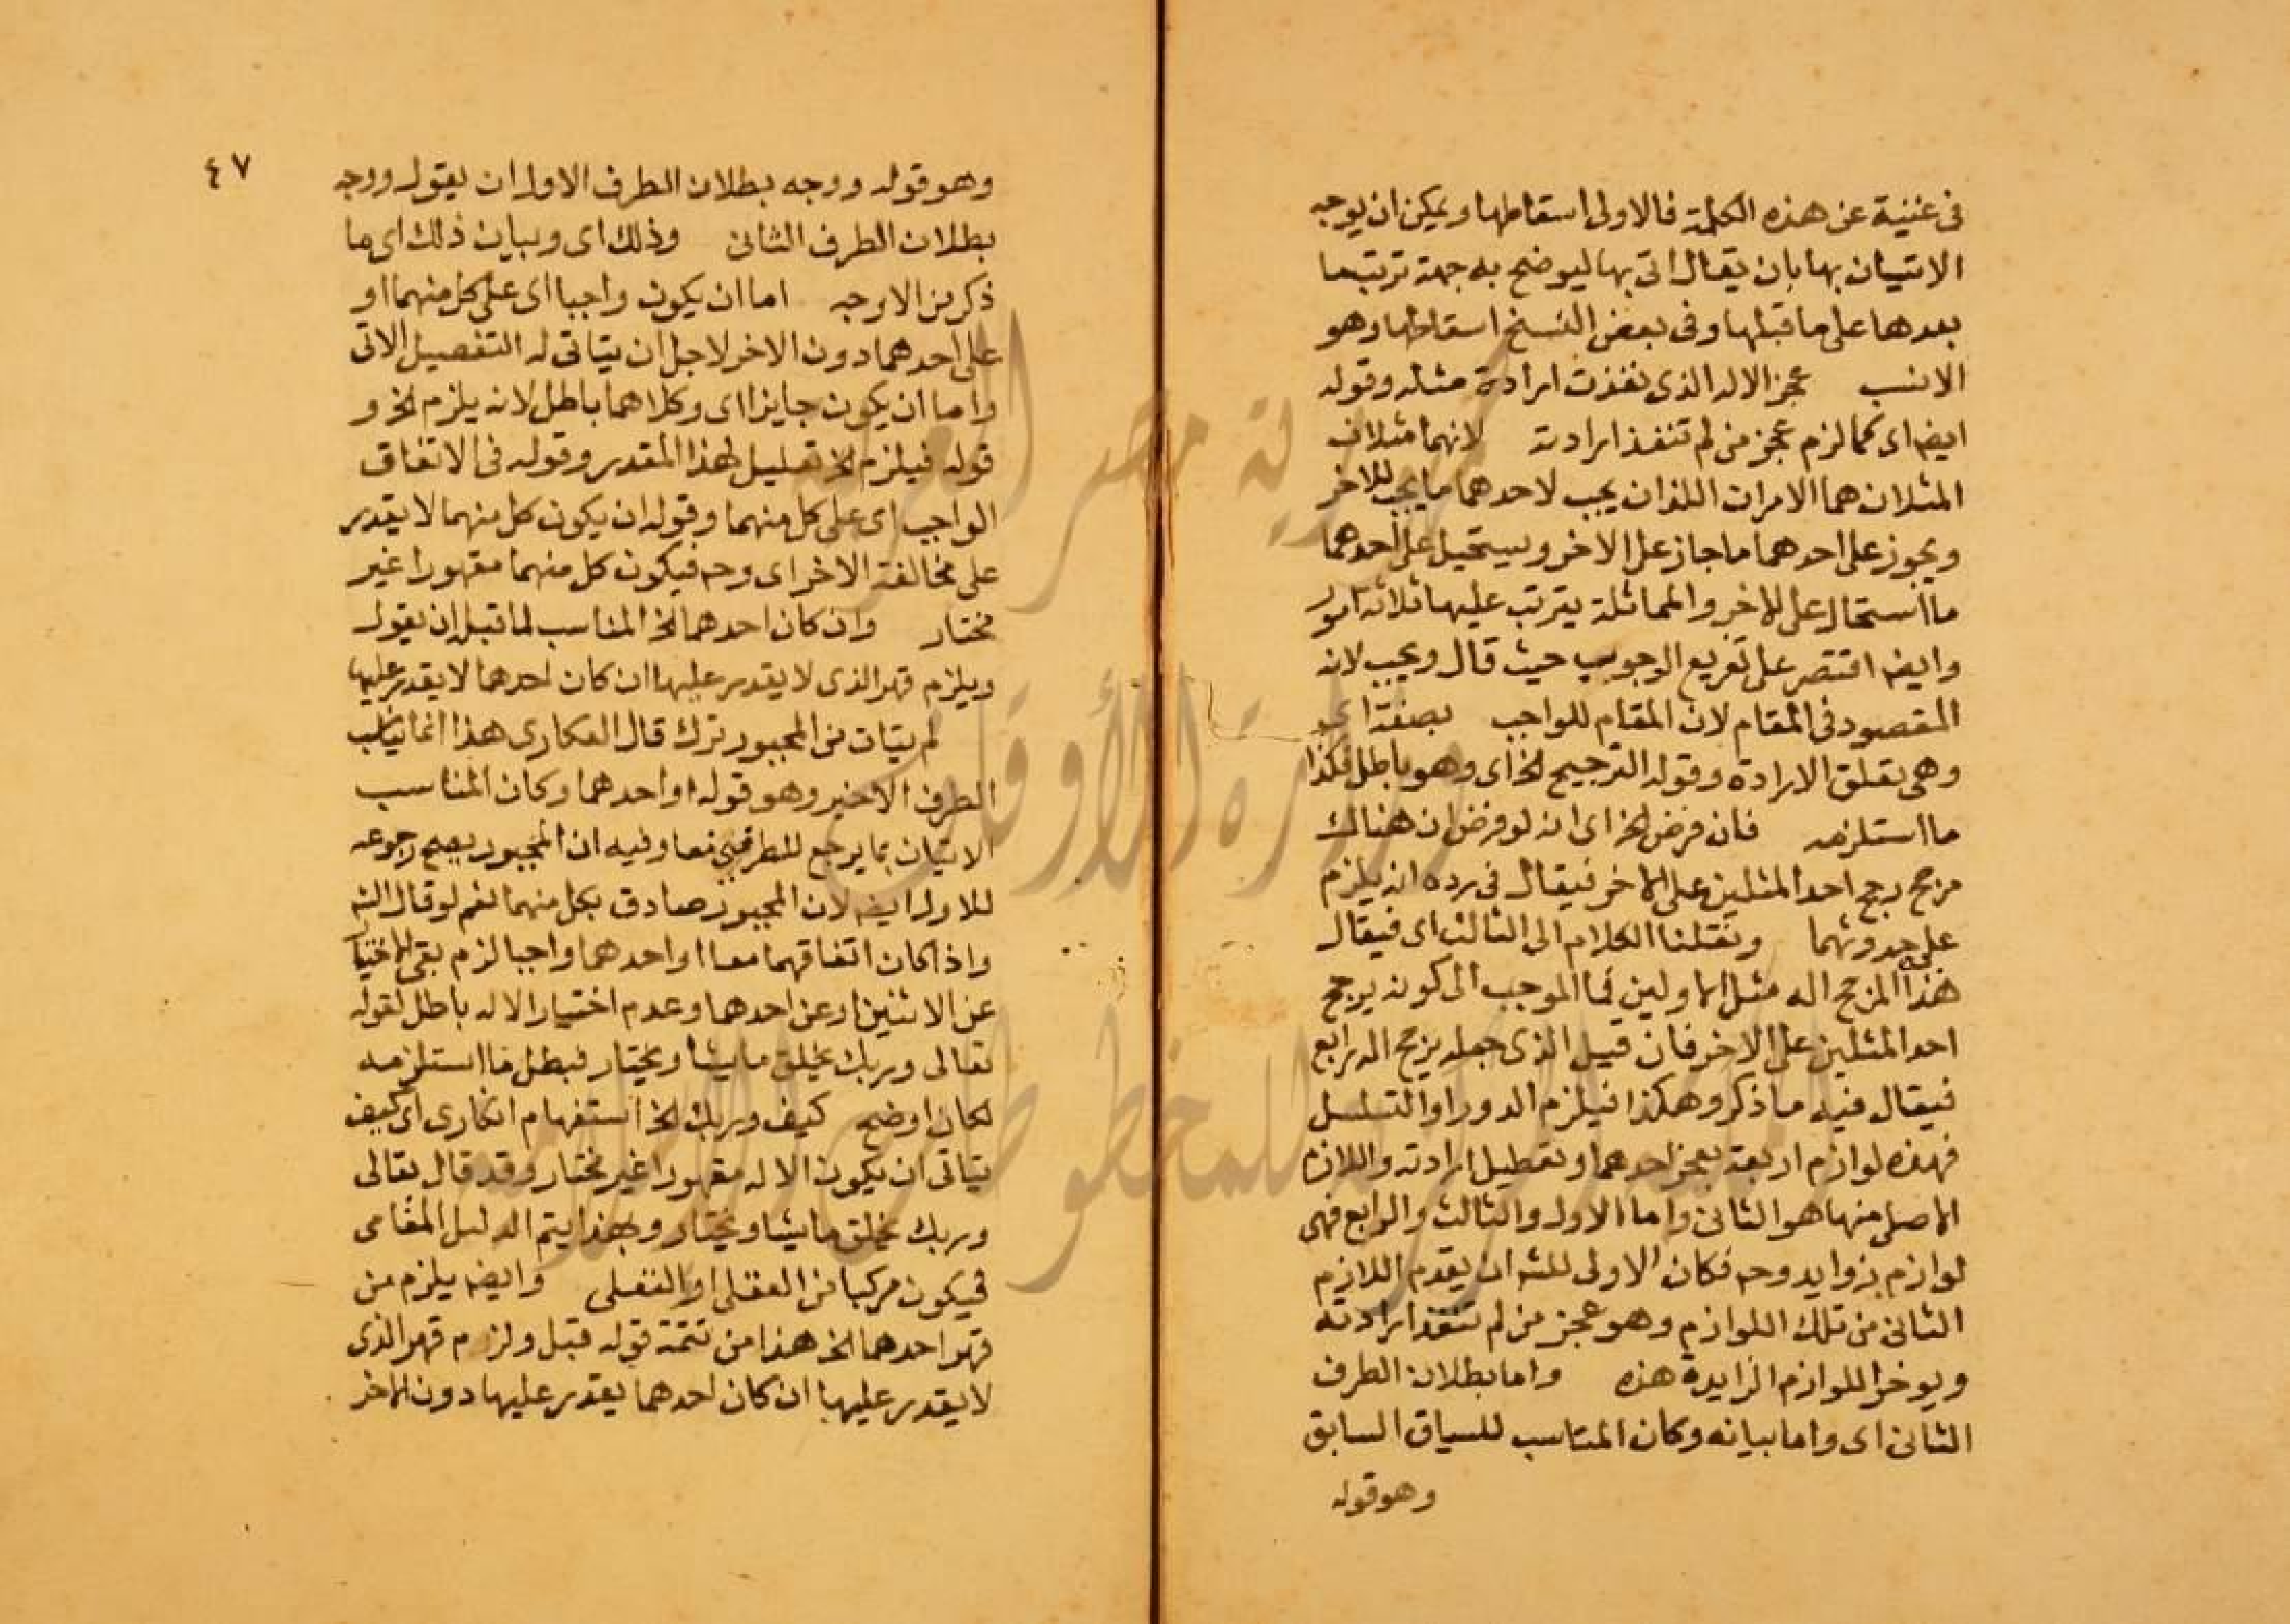 فى غنية عن هذه الكلمة فالاولى اسقاطها ويمكن ان يوجه
الاتيان بها بان يقال اتى بها ليوضح به جهة ترتب ما
بعدها على ما قبلها وفى بعض النسخ اسقاطها وهو
الانسب عجز الاله الذى نفذت ارادة مثله وقوله
ايضا اى كما لزم عجز من لم تنفذ ارادته لانهما مثلان
المثلان هما الامران اللذان يجب لاحدهما ما يجب للاخر
ويجوز على احدهما ما جاز على الاخر ويستحيل على احدهما
ما استحال على الاخر والمماثلة يترتب عليها ثلاثة امور
وايضا اقتصر على تفريع الوجوب حيث قال ويجب لانه
المقصود فى المقام لان المقام للواجب بصفة
وهى تعلق الارادة وقوله الترجيح الخ اى وهو باطل فكذا
ما استلزمه فان فرض الخ اى انه لو فرض ان هنالك
مرجح رجح احد المثلين على الاخر فيقال فى رده انه يلزم
على حدوثهما ونقلنا الكلام الى الثالث اى فيقال
هذا المرجح اله مثل الاولين فما الموجب الى كونه يرجح
احد المثلين على الاخر فان قيل الذى جعله يرجح اله رابع
فيقال فيه ما ذكر وهكذا فيلزم الدور او التسلسل
فهذه لوازم اربعة بعجز احدهما وتعطيل ارادته واللازم
الاصلى منها هو الثانى واما الاول والثالث والرابع فهى
لوازم زوايد وحـ فكان الاولى للشـ ان يقدم اللازم
الثانى من تلك اللوازم وهو عجز من لم تنفذ ارادته
ويوخر اللوازم الزايدة هذه واما بطلان الطرف
الثانى اى واما بيانه وكان المناسب للسياق السابق
وهو قوله
٤٧
وهو قوله ووجه بطلان الطرف الاول ان يقول ووجه
بطلان الطرف الثانى وذلك اى وبيان ذلك اى ما
ذكر من الاوجه اما ان يكون واجبا اى على كل منهما او
على احدهما دون الاخر لاجل ان يتاتى له التفصيل الاتى
واما ان يكون جايزا اى وكلاهما باطل لانه يلزم الخ و
قوله فيلزم الخ تعليل لهذا المقدر وقوله فى الاتفاق
الواجب اى على كل منهما وقوله ان يكون كل منهما لا يقدر
على مخالفة الاخر اى وحـ فيكون كل منهما مقهورا غير
مختار وان كان احدهما الخ المناسب لما قبله ان يقول
ويلزم قهر الذى لا يقدر عليها ان كان احدهما لا يقدر عليها
لم يتات من المجبور ترك قال العكارى هذا انما يناسب
الطرف الاخير وهو قوله او احدهما وكان المناسب
الاتيان بما يرجع للطرفين معا وفيه ان المجبور يصح رجوعه
للاول ايضا لان المجبور صادق بكل منهما نعم لو قال الشـ
واذا كان اتفاقهما معا او احدهما واجبا لزم نفى الاختيار
عن الاثنين او عن احدهما وعدم اختيار الاله باطل لقوله
تعالى وربك يخلق ما يشا ويختار فبطل ما استلزمه
لكان اوضح كيف وربك الخ استفهام انكارى اى كيف
يتاتى ان يكون الاله مقهورا غير مختار وقد قال تعالى
وربك يخلق ما يشا ويختار وبهذا يتم الدليل المقامى
فيكون مركبا من العقلى والنقلى وايضا يلزم من
قهر احدهما الخ هذا من تتمة قوله قبل ولزم قهر الذى
لا يقدر عليها ان كان احدهما يقدر عليها دون الاخر